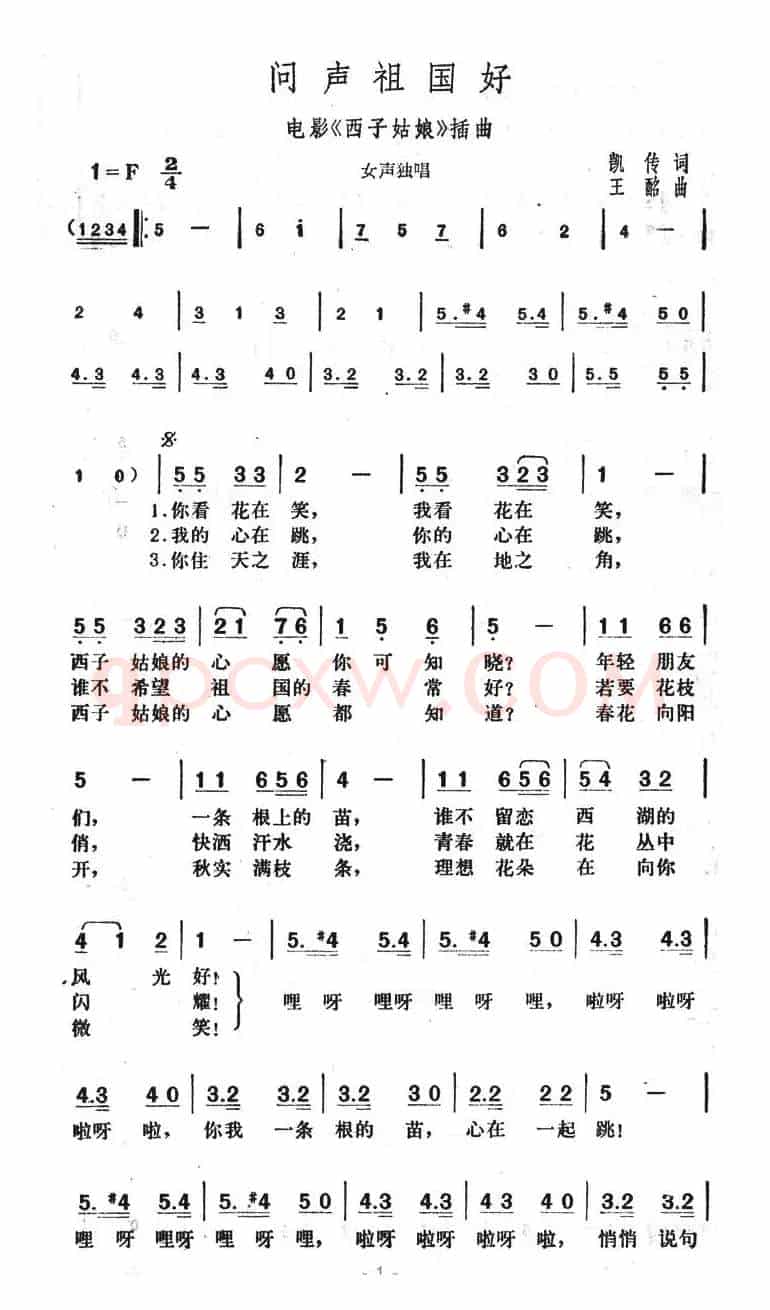 问声祖国好
电影《西子姑娘》插曲
1=F 2/4 女声独唱 凯传词
王酩曲
(1234 5 — 6 i 7 5 7 6 2 4 —
2 4 3 1 3 2 1 5.#4 5.4 5.#4 5 0
4.3 4.3 4.3 4 0 3.2 3.2 3.2 3 0 5.5 5 5
1 0) 5 5 3 3 2 — 5 5 3 2 3 1 —
1.你看 花在 笑, 我看 花在 笑,
2.我的 心在 跳, 你的 心在 跳,
3.你住 天之 涯, 我在 地之 角,
5 5 3 2 3 2 1 7 6 1 5 6 5 — 1 1 6 6
西子 姑娘的 心 愿 你 可 知 晓? 年轻 朋友
谁不 希望 祖 国的 春 常 好? 若要 花枝
西子 姑娘的 心 愿 都 知 道? 春花 向阳
5 — 1 1 6 5 6 4 — 1 1 6 5 6 5 4 3 2
们, 一条 根上的 苗, 谁不 留恋 西 湖的
俏, 快洒 汗水 浇, 青春 就在 花 丛中
开, 秋实 满枝 条, 理想 花朵 在 向你
4 1 2 1 — 5.#4 5.4 5.#4 5 0 4.3 4.3
风 光 好!
闪 耀! 哩 呀 哩呀 哩 呀 哩, 啦呀 啦呀
微 笑!
4.3 4 0 3.2 3.2 3.2 3 0 2.2 2.2 5 —
啦呀 啦, 你我 一条 根的 苗, 心在 一起 跳!
5.#4 5.4 5.#4 5 0 4.3 4.3 4.3 4 0 3.2 3.2
哩 呀 哩呀 哩 呀 哩, 啦呀 啦呀 啦呀 啦, 悄悄 说句
- 1 -